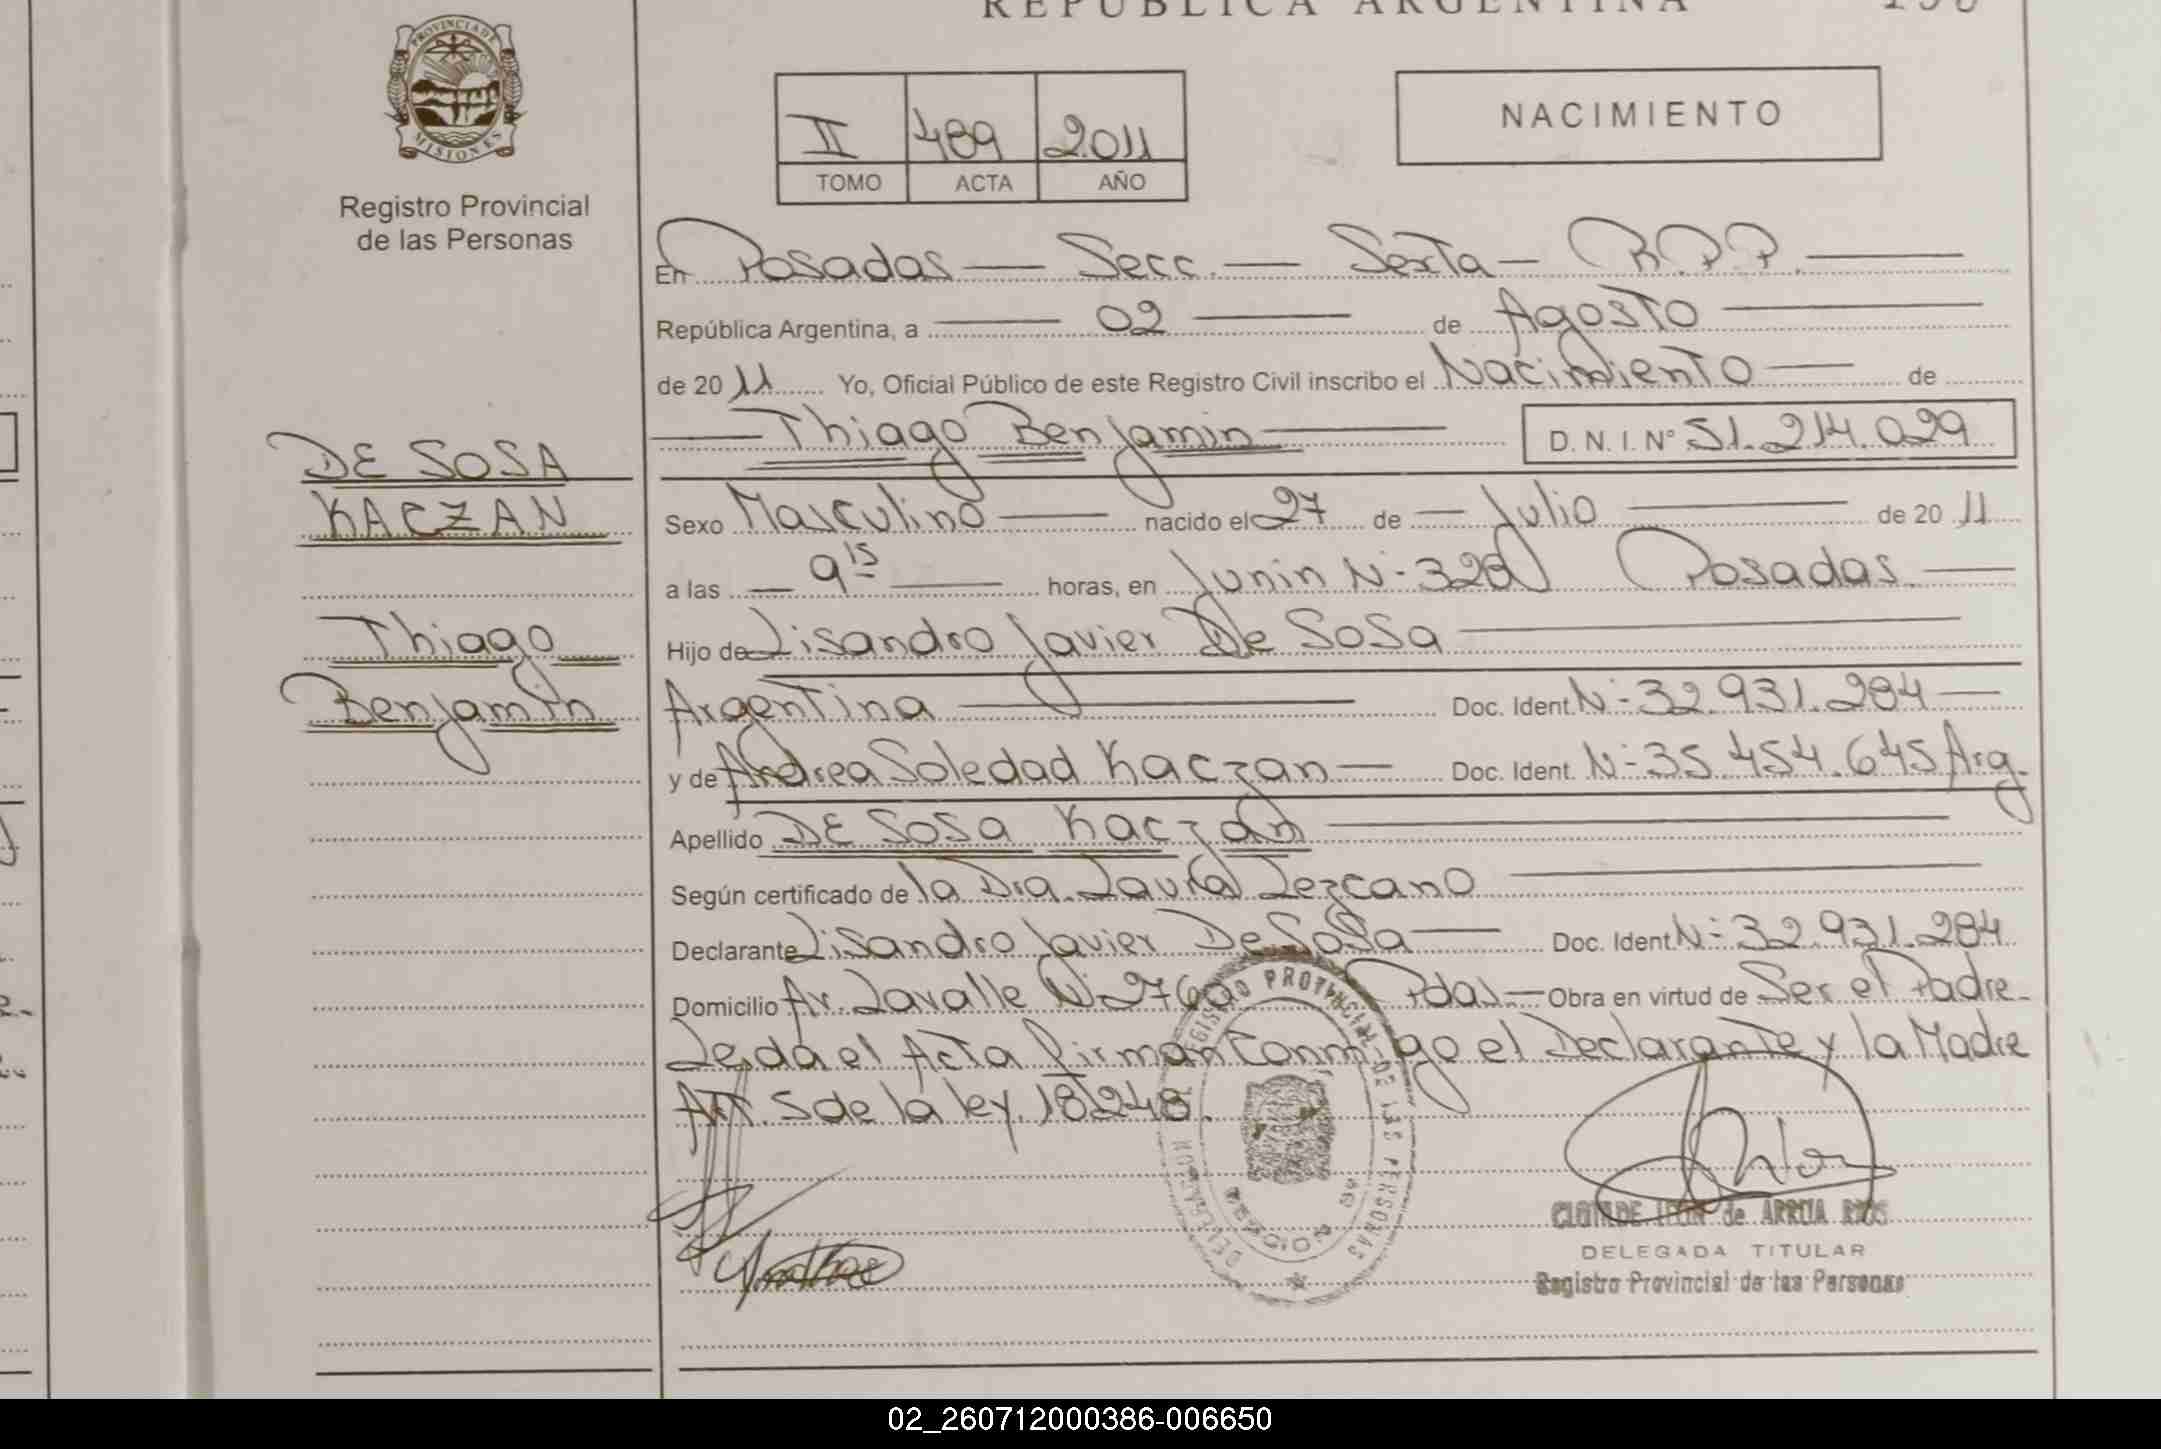 REPUBLICA ARGENTINA
PROVINCIA DE
MISIONES
Registro Provincial
de las Personas
NACIMIENTO
II 489 2011
TOMO ACTA AÑO
En Posadas — Secc. — Sexta — R.P.P. —
República Argentina, a — 02 — de Agosto —
de 2011 Yo, Oficial Público de este Registro Civil inscribo el Nacimiento — de
— Thiago Benjamin — D. N. I. Nº 51.214.029
DE SOSA
KACZAN
Thiago
Benjamin
Sexo Masculino — nacido el 27 de — Julio — de 2011
a las — 9 15 — horas, en Junin Nº 328 Posadas. —
Hijo de Lisandro Javier De Sosa —
Argentina — Doc. Ident. Nº 32.931.284 —
y de Andrea Soledad Kaczan — Doc. Ident. Nº 35.454.645 Arg.
Apellido DE SOSA Kaczan —
Según certificado de la Dra. Laura Lezcano —
Declarante Lisandro Javier De Sosa — Doc. Ident. Nº 32.931.284
Domicilio Av. Lavalle Nº 2760 Pdas — Obra en virtud de Ser el Padre -
Leida el Acta firman Conmigo el Declarante y la Madre
Art. 5 de la ley. 18248.
REGISTRO PROVINCIAL DE LAS PERSONAS
DELEGACION
CLOTILDE LEON de ARRUA RIOS
DELEGADA TITULAR
Registro Provincial de las Personas
02_260712000386-006650